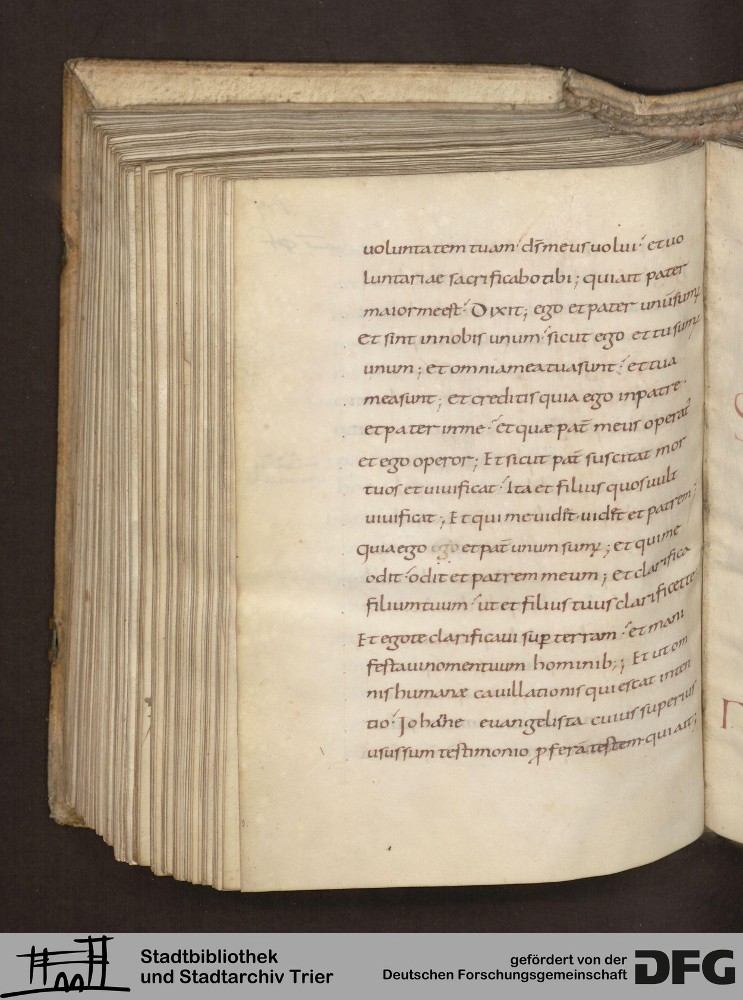 uoluntatem tuam ds̄ meus uolui et uo
luntariae sacrificabo tibi; qui ait pater
maior me est. Dixit; ego et pater unū sumꝰ
Et sint in nobis unum sicut ego et tu sumꝰ
unum; et omnia mea tua sunt et tua
mea sunt; et creditis quia ego in patre
et pater in me et quæ pat̄ meus operat̄
et ego operor; Et sicut pat̄ suscitat mor
tuos et uiuificat. Ita et filius quos uult
uiuificat; Et qui me uidet uidet et patrem;
quia ego et pat̄ unum sumꝰ; et qui me
odit odit et patrem meum; et clarifica
filium tuum ut et filius tuus clarificet te
Et ego te clarificaui sup̄ terram et mani
festaui nomen tuum hominib;; Et ut om
nis humanæ cauillationis quiescat inten
tio Iohanne euangelista cuius superius
usus sum testimonio p̄ferā testem qui ait;
Stadtbibliothek
und Stadtarchiv Trier
gefördert von der
Deutschen Forschungsgemeinschaft
DFG